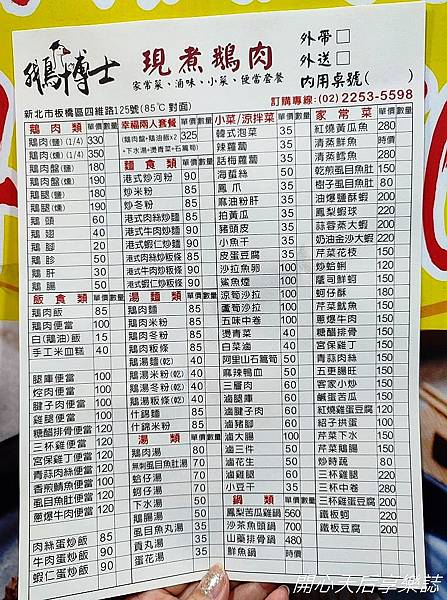 鵝博士
現煮鵝肉
家常菜、滷味、小菜、便當套餐
外帶
外送
內用桌號( )
新北市板橋區四維路125號(85℃對面)
訂購專線:(02) 2253-5598
鵝肉類 單價 數量
鵝肉(鹽) (1/4) 330
鵝肉(燻) (1/4) 350
鵝肉盤(鹽) 180
鵝肉盤(燻) 190
鵝腿(鹽) 180
鵝腿(燻) 190
鵝頭 60
鵝翅 40
鵝腳 20
鵝胗 50
鵝肝 30
鵝腸 50
飯食類 單價 數量
鵝肉飯 85
鵝肉便當 100
白(鵝油)飯 15
手工米血糕 40
腿庫便當 100
焢肉便當 100
腱子肉便當 100
雞腿便當 100
糖醋排骨便當 120
三杯雞便當 120
宮保雞丁便當 120
青蒜肉絲便當 120
香煎鯖魚便當 120
虱目魚肚便當 120
蔥爆牛肉便當 120
肉絲蛋炒飯 85
牛肉蛋炒飯 90
蝦仁蛋炒飯 90
幸福兩人套餐 單價 數量
(鵝肉盤+鵝油飯x2 325
+下水湯+燙青菜+石篙筍)
麵食類 單價 數量
港式炒河粉 90
炒米粉 85
炒冬粉 85
港式肉絲炒麵 85
港式牛肉炒麵 90
港式蝦仁炒麵 90
港式肉絲炒粄條 85
港式牛肉炒粄條 90
港式蝦仁炒粄條 90
湯麵類 單價 數量
鵝肉麵 85
鵝肉米粉 85
鵝肉冬粉 85
鵝肉粄條 85
鵝湯麵(乾) 40
鵝湯米粉(乾) 40
鵝湯冬粉(乾) 40
鵝湯粄條(乾) 40
什錦麵 85
什錦米粉 85
湯類 單價 數量
鵝肉湯 80
無刺虱目魚肚湯 80
蛤仔湯 70
蚵仔湯 70
下水湯 50
鵝腸湯 50
虱目魚丸湯 35
貢丸湯 35
蛋花湯 35
小菜/涼拌菜 單價 數量
韓式泡菜 35
辣蘿蔔 35
話梅蘿蔔 35
海蜇絲 50
鳳爪 50
麻油粉肝 35
拍黃瓜 35
豬頭皮 35
小魚干 35
皮蛋豆腐 35
沙拉魚卵 100
鯊魚煙 100
涼筍沙拉 100
蘆筍沙拉 100
五味中卷 100
燙青菜 40
白菜滷 40
阿里山石篙筍 40
麻辣鴨血 50
三層肉 60
滷腿庫 60
滷腱子肉 60
滷豬腳 60
滷大腸 100
滷三件 50
滷花生 50
滷雞腿 60
小豆干 35
鍋類 單價 數量
鳳梨苦瓜雞鍋 560
沙茶魚頭鍋 700
山藥排骨鍋 480
鮮魚鍋 時價
家常菜 單價 數量
紅燒黃瓜魚 280
清蒸鮮魚 時價
清蒸鱈魚 280
乾煎虱目魚肚 150
樹子虱目魚肚 80
油爆鹽酥蝦 200
鳳梨蝦球 220
蒜蓉蒸大蝦 200
奶油金沙大蝦 220
芹菜花枝 150
炒蛤蜊 120
蔭司鮮蚵 150
蚵仔酥 180
芹菜魷魚 150
蔥爆牛肉 150
糖醋排骨 150
宮保雞丁 150
青蒜肉絲 150
五更腸旺 150
客家小炒 150
鹹蛋苦瓜 150
紅燒雞蛋豆腐 120
紹子拱蛋 100
芹菜下水 150
芹菜鵝腸 150
炒時蔬 80
三杯雞 200
三杯中卷 280
三杯雞蛋豆腐 200
鐵板蚵 220
鐵板豆腐 200
開心天后享樂誌